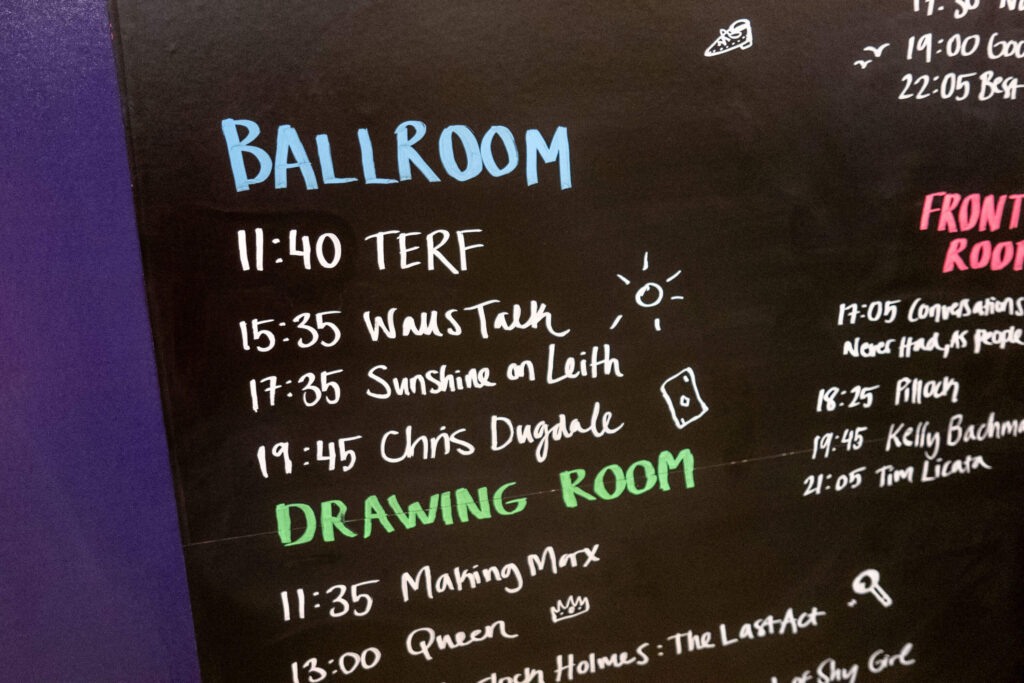 BALLROOM
11:40 TERF
15:35 Walls Talk
17:35 Sunshine on Leith
19:45 Chris Dugdale
DRAWING ROOM
11:35 Making Marx
13:00 Queen
Holmes: The Last Act
of Shy Girl
19:00
22:05 Best
FRONT
17:05 Conversations
Never Had, As People
18:25 Pilloch
19:45 Kelly
21:05 Tim Licata